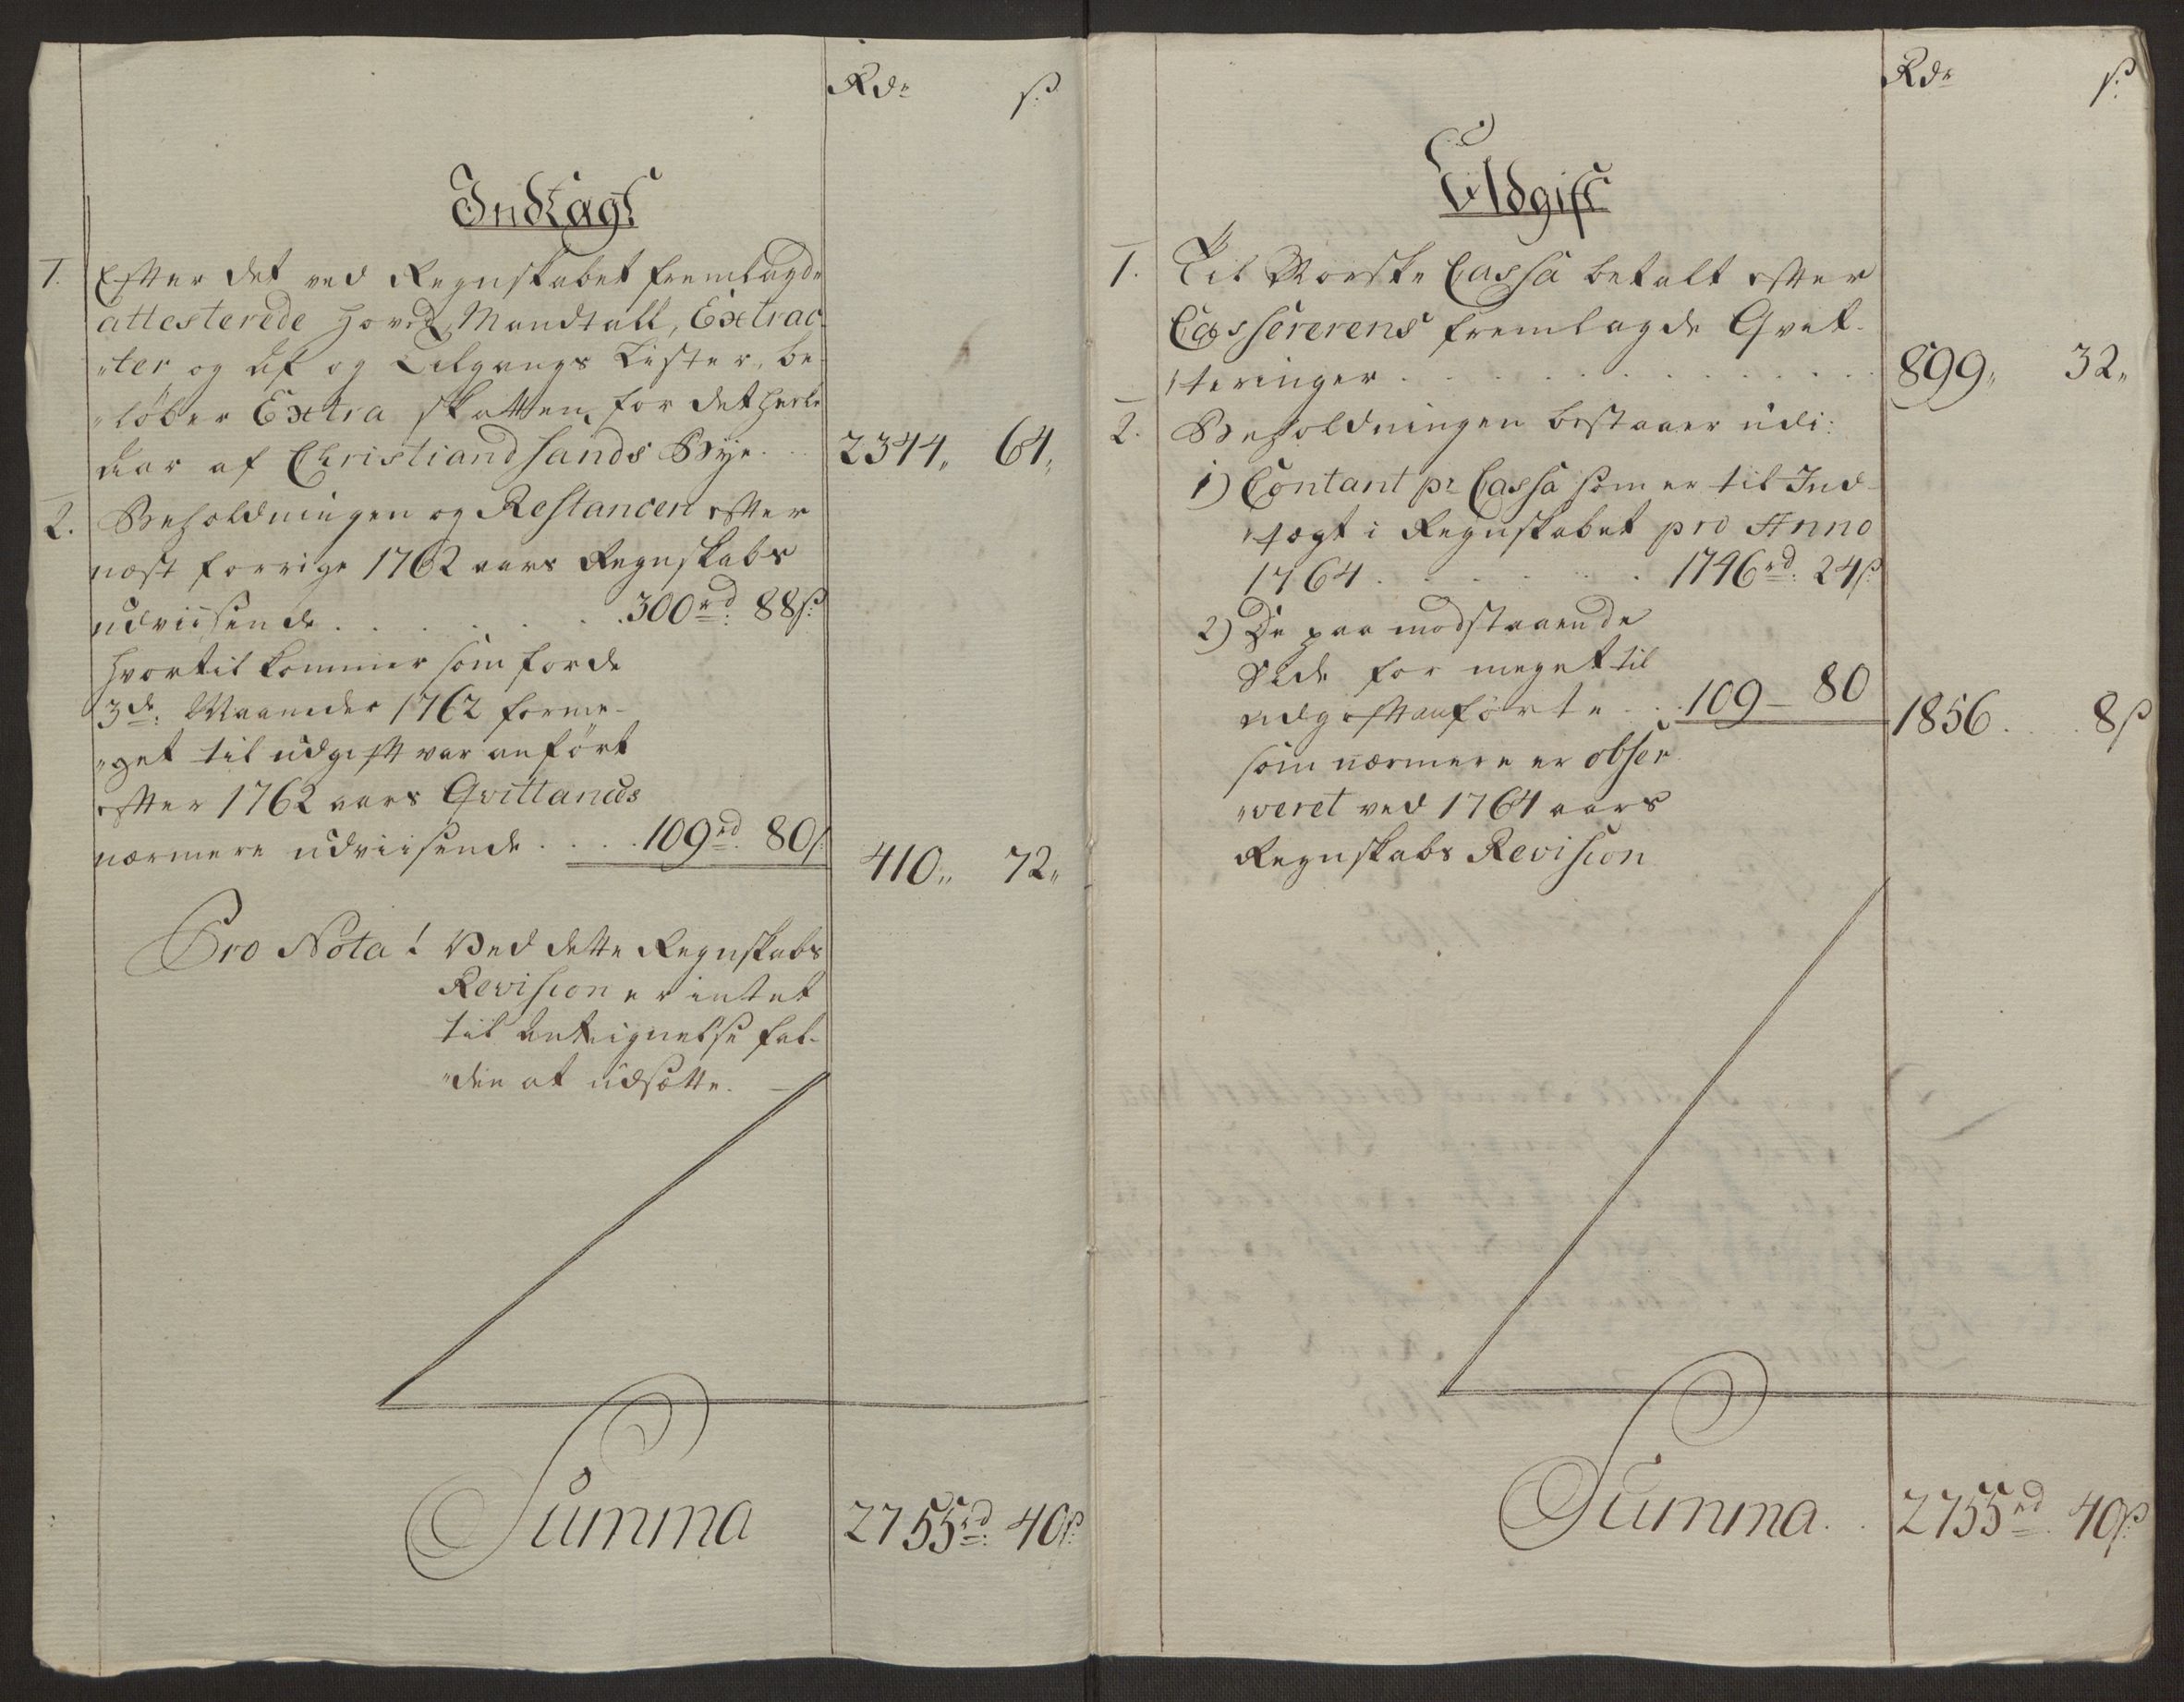 Rdr ß:
Indtægt
1. Efter det ved Regnskabet fremlagde
attesterede Hoved Mandtall, Extrac-
"ter og Af og Tilgangs Lister, be-
"løber Extra Skatten for det heele
Aar af Christiandsands Bye . . . 2344„ 64„
2. Beholdningen og Restancen efter
næst forrige 1762 aars Regnskabs
udviisende . . . . . . . 300rd: 88ß:
Hvortil kommer som for de
3de: Maaneder 1762 forme-
"get til udgift var anført
efter 1762 aars Qvittances
nærmere udviisende . . . . 109rd: 80ß: 410„ 72„
Pro Nota! Ved dette Regnskabs
Revision er intet
til Antegnelse fal-
"den at udsætte. —
Summa 2755rd: 40ß:
Rdr ß:
Udgift
1. Til Norske Cassa betalt efter
Cassererens fremlagde Qvit-
"teringer . . . . . . . . . . 899„ 32„
2. Beholdningen bestaaer udi:
1) Contant pr Cassa som er til Ind-
"tægt i Regnskabet pro Anno
1764 . . . . . . 1746rd: 24ß:
2) De paa modstaaende
Side for meget til
udgift anførte . . . 109 — 80 1856 . . . 8ß
som nærmere er obser-
"veret ved 1764 aars
Regnskabs Revision
Summa . . 2755rd 40ß: